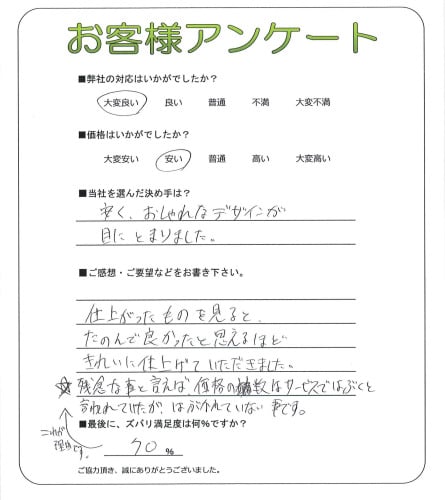 お客様アンケート
■弊社の対応はいかがでしたか?
大変良い 良い 普通 不満 大変不満
■価格はいかがでしたか?
大変安い 安い 普通 高い 大変高い
■当社を選んだ決め手は?
安く、おしゃれなデザインが
目にとまりました。
■ご感想・ご要望などをお書き下さい。
仕上がったものを見ると、
たのんで良かったと思えるほど
きれいに仕上げていただきました。
☆残念な事と言えば、価格の端数はサービスではぶくと
言われていたが、はぶかれていない事です。
これが
理由です。
■最後に、ズバリ満足度は何%ですか?
70 %
ご協力頂き、誠にありがとうございました。